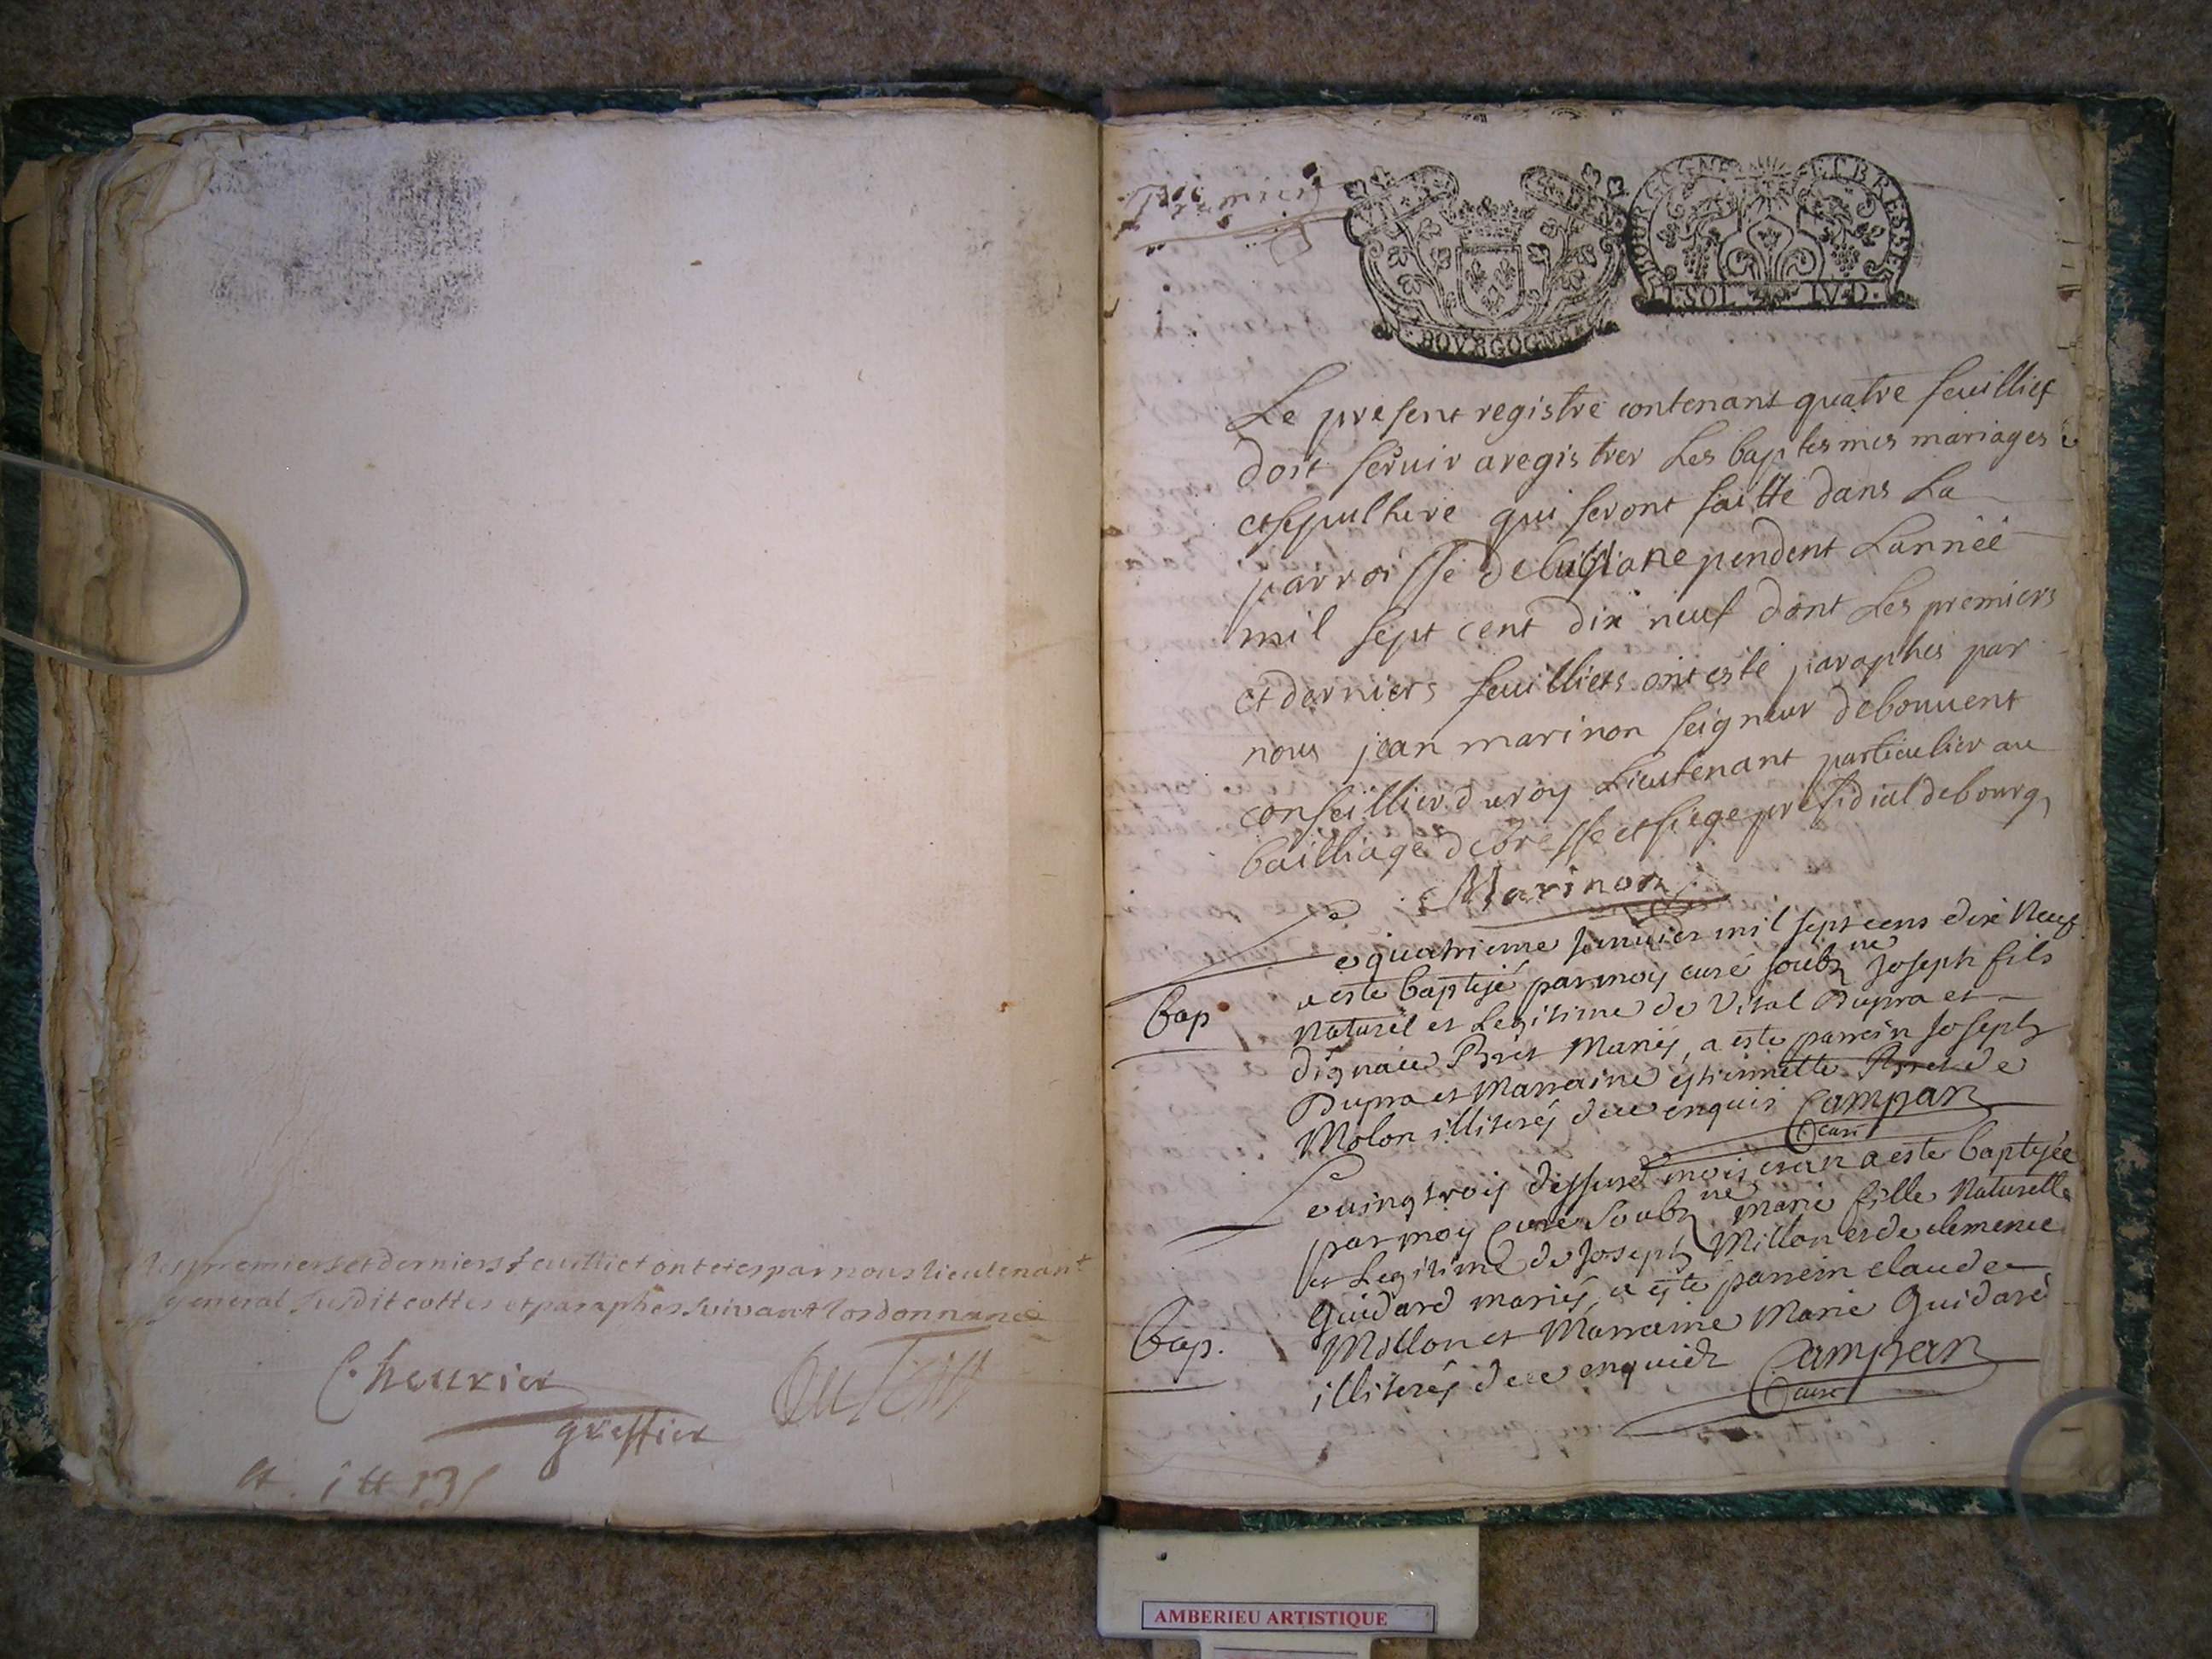 les premiers et derniers feuilliet ont etes par nous lieutenant
general susdit cottes et paraphes suivant lordonnance
Cheurier
greffier
Premier
BOVRGOGNE
BOVRGOGNE ET BRESSE
I·SOL IV·D·
Le present registre contenant quatre feuillies
doit seruir aregistrer Les baptesmes mariages
et sepulture qui seront faitte dans La
parroisse de pendent Lannéé
mil sept cent dix neuf dont Les premiers
et derniers feuilliets ont esté paraphes par
nous jean marinon seigneur debouuent
conseillier duroy Lieutenant particulier au
bailliage debresse et siege presidial debourg
Marinon
Le quatrieme Januier mil sept cens dix Neuf
a este baptisé par moy curé soubz ne Joseph fils
Bap
Naturel et Legitime de Vital Dupra et
Bret Mariés, a este parrein Joseph
Dupra et Marraine estiennette Bret de
Molon illiterés de ce enquis Campan
Curé
Le uingt trois dessusd mois et an a este baptisée
par moy Curé Soubz ne marie fille Naturelle
et Legitime de Joseph Millon et de clemence
Guidard mariés, a esté parrein claude
Bap.
Millon et Marraine Marie Guidard
illiterés de ce enquis Campan
Curé
AMBERIEU ARTISTIQUE